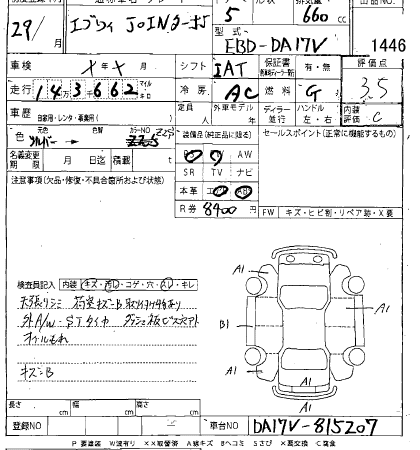 29/ 月
エブリィ JOINターボ
5
排気量 660 cc
型式 EBD-DA17V
出品NO.
1446
車検 年 月
シフト IAT
保証書
有・無
評価点
3.5
走行 143662 マイル キロ
冷房 AC
燃料 G
内装評価 C
車歴 自家用・レンタ・事業用( )
定員 人
外車モデル 年
ディーラー 並行
ハンドル 左・右
色 元色 シルバー 色替 カラーNO Z2S
装備品(純正品に限る)
セールスポイント(正常に機能するもの)
名義変更期限 月 日迄 積載
PS PW AW
SR TV ナビ
本革 エアB ABS
R券 8400 円
FW キズ・ヒビ割・リペア跡・X要
注意事項(欠品・修復・不具合箇所および状態)
検査員記入 内装 キズ・汚レ・コゲ・穴・スレ・キレ
天張リシミ 荷室キズB 取付ケ跡あり
外A/W・STタイヤ
オイルもれ
キズB
A1
A1
A1
B1
A1
A1
A1
長さ cm 幅 cm 高さ cm
登録NO
車台NO DA17V-815207
P 要塗装 W波有り ××取替済 A線キズ Bヘコミ Sさび ×要交換 C腐食